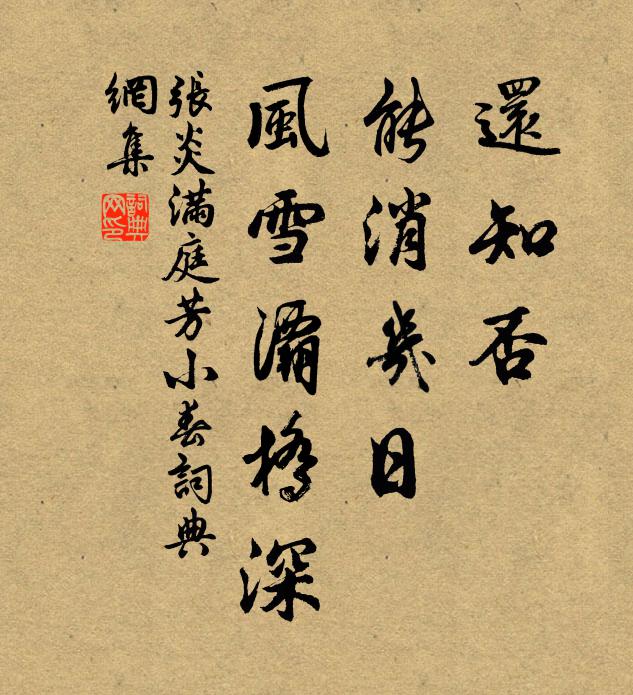 還知否
能消幾日
風雪灞橋深
張炎滿庭芳小春詞典
網集
詞典
网印